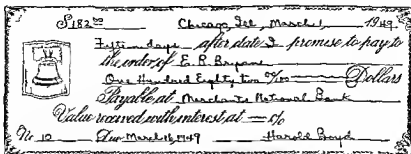 $182 00 Chicago, Ill., March 1 1949
Fifteen days after date I promise to pay to
the order of E. R. Bryant
One Hundred Eighty two 00/100 Dollars
Payable at Merchants National Bank
Value received with interest at — %
No 12 Due March 16, 1949 Harold Boyd